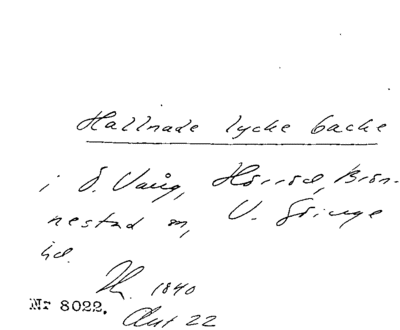 Hallnade lycke backe
i Ö. Vång, Hörröd, Brön-
nestad sn, V. Göinge
hd.
1840
Nr 8022. Aut 22